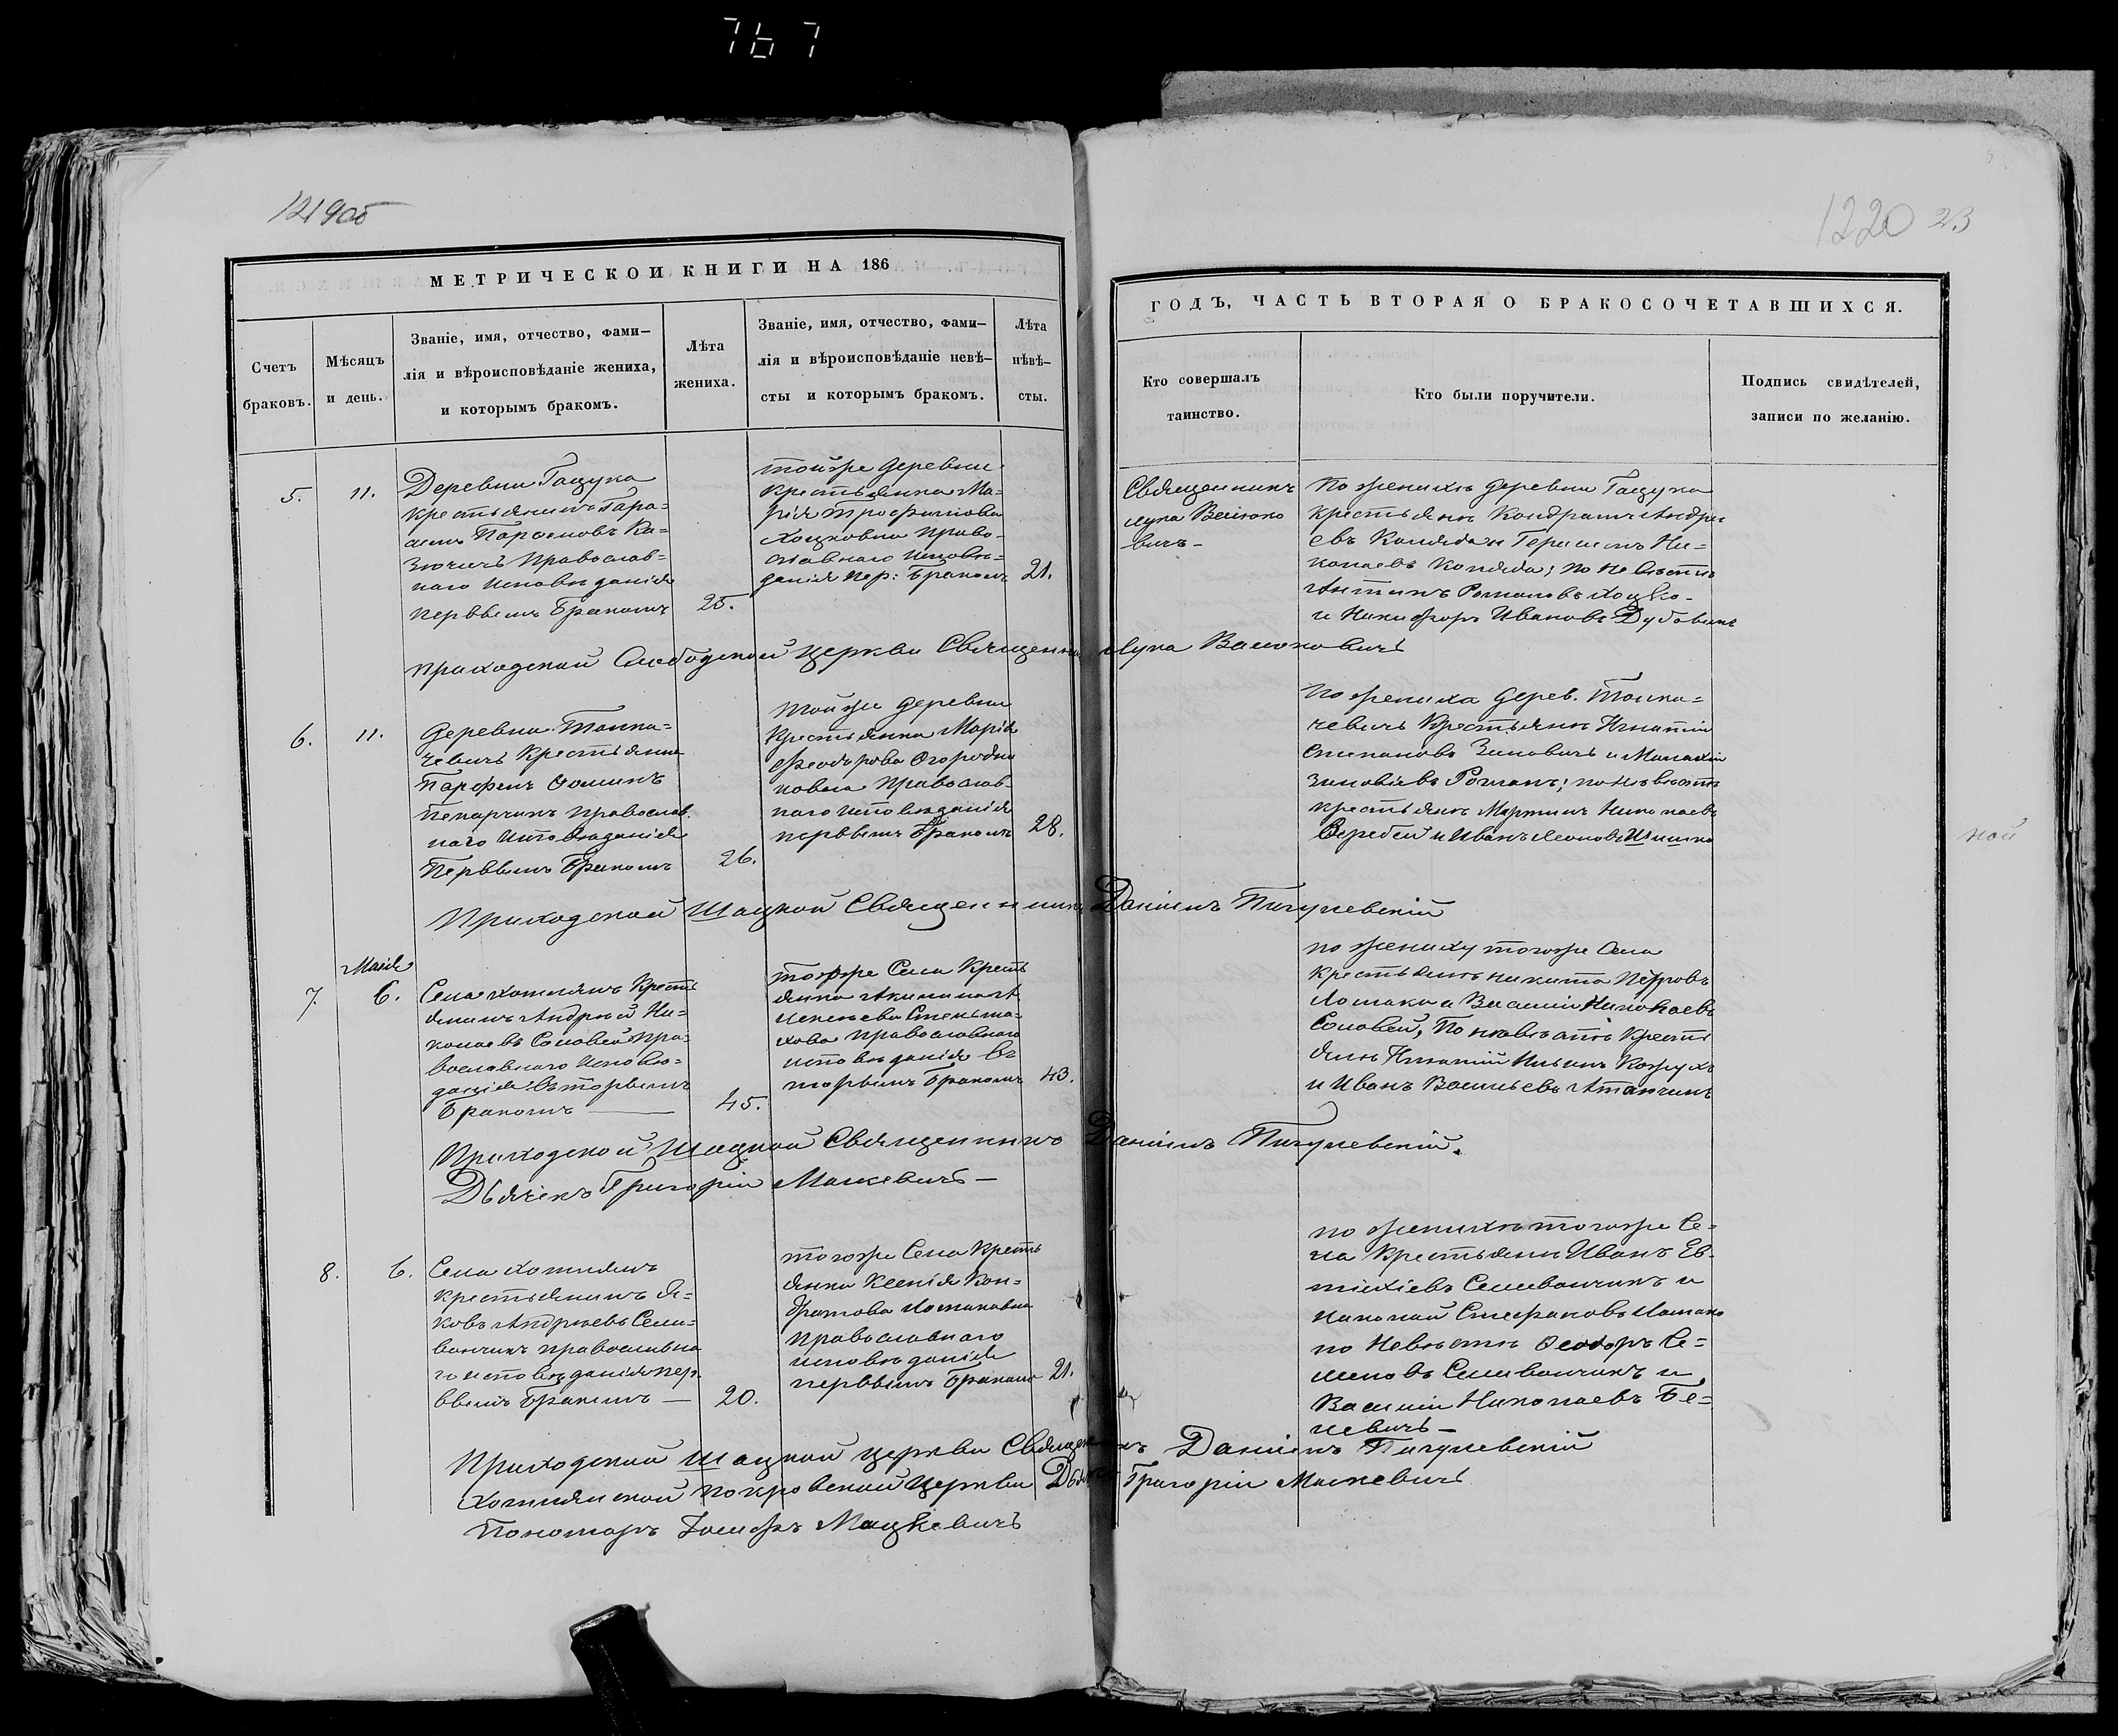 767
1219об
1220 23
МЕТРИЧЕСКОИ КНИГИ НА 186
Счетъ браковъ.
Мѣсяцъ и день.
Званіе, имя, отчество, фами-
лія и вѣроисповѣданіе жениха,
и которымъ бракомъ.
Лѣта жениха.
Званіе, имя, отчество, фами-
лія и вѣроисповѣданіе невѣ-
сты и которымъ бракомъ.
Лѣта нѣвѣ-
сты.
ГОДЪ, ЧАСТЬ ВТОРАЯ О БРАКОСОЧЕТАВШИХСЯ.
Кто совершалъ
таинство.
Кто были поручители.
Подпись свидѣтелей,
записи по желанію.
5.
11.
Деревни Гацука
крестьянинъ Гара-
симъ Ка-
зючичъ Православ-
наго исповѣданія
первымъ бракомъ
25.
тойже деревни
крестьянка Ма-
рія Трофимова
Хоцковна Право-
славнаго исповѣ-
данія пер: бракомъ
21.
Священникъ
Лука
вичъ
По женихѣ деревни Гацука
крестьяне Кондратъ Андре
евъ Коляда и Герасимъ Ни-
колаевъ Коляда; по невѣстѣ
Антонъ Романовъ Хоцко
и Никифоръ Ивановъ Дубовикъ
Приходской Слободской церкви Священникъ Лука
6.
11.
Деревни Толка-
чевичъ крестьянинъ
Парфенъ Ѳоминъ
православ
наго исповѣданія
первымъ бракомъ
26.
тойже деревни
крестьянка Марія
Феодорова Огородни
ковна православ-
наго исповѣданія
первымъ бракомъ
28.
по жениха дерев. Толка-
чевичъ крестьяне Игнатій
Степановъ Зиновичъ и
Зиновіевъ Романъ; по невѣстѣ
крестьяне Мартинъ Николаевъ
Веребей и Иванъ Леоновъ Шишко
ной
Приходской Шацкой Священникъ Даніилъ Пигулевскій
Маія
7.
6.
Села Хотлянъ кресть
янинъ Андрей Ни-
колаевъ Соловей пра-
вославнаго исповѣ-
данія вторымъ
бракомъ
45.
тогоже Села кресть
янка Акилина А
лексѣева
хова православнаго
исповѣданія в
торымъ бракомъ
43.
по жениху тогоже Села
крестьяне Никита Петровъ
Ломако и Василій Николаевъ
Соловей, По невѣстѣ кресть
яне Игнатій Ильинъ Кожухъ
и Иванъ Васильевъ
Приходской Шацкой Священникъ Даніилъ Пигулевскій.
Дьячекъ Григорій Маскевичъ
8.
6.
Села Хотлянъ
крестьянинъ Я-
ковъ Андреевъ Сели-
ванчикъ православна
го исповѣданія пер
ввымъ бракомъ
20.
тогоже Села кресть
янка Ксенія Кон-
дратова Ломаковна
православнаго
исповѣданія
первымъ бракомъ
21.
по женихѣ тогоже Се-
ла крестьяне Иванъ Ев-
тихіевъ Селиванчикъ и
Николай Стефановъ Ломако
по Невѣстѣ Ѳеодоръ Се-
меновъ Селиванчикъ и
Василій Николаевъ Бе-
невичъ
Приходской Шацкой церкви Священникъ Даніилъ Пигулевскій
Хотлянской покровской Церкви Дьячекъ Григорій Маскевичъ
Пономарь Іосифъ Мацкевичъ